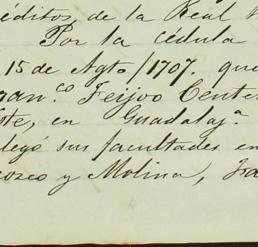 réditos de la Real
Por la cédula
15 de Agto/1707. que
ran.co Feijoo Cente
ste, en Guadalaj.a
legó sus facultades en
rozco y Molina,